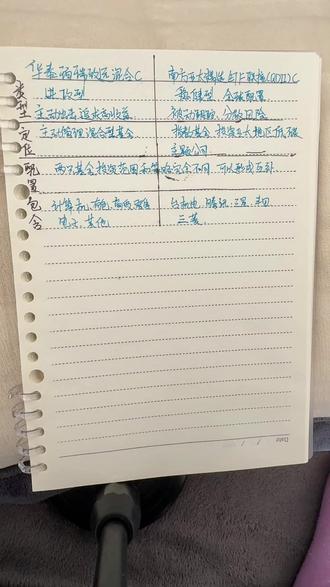 华泰两端致远混合C 南方亚太精选ETF联接(QDII)C
类型 进攻型 稳健型 全球配置
主动出击 追求高收益 被动跟踪 分散风险
定位 主动管理混合型基金 指数基金 投资亚太地区低碳
主题公司
配置 两只基金投资范围和策略完全不同 可以形成互补
包含 计算机、有色、 台积电、腾讯、三星、丰田
电子、其他 三菱
Date / /